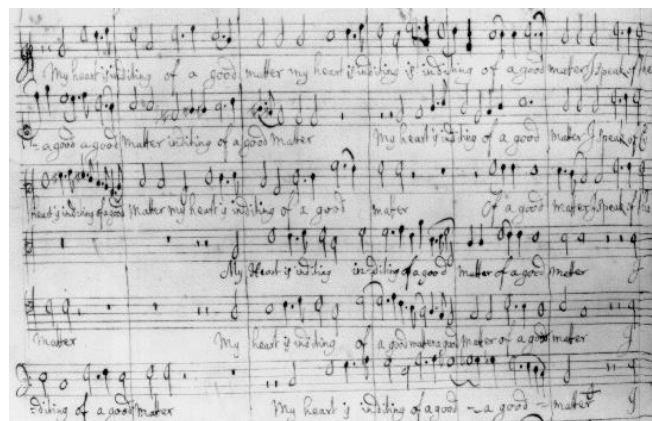 My heart is inditing of a good matter my heart is inditing is inditing of a good mater I speak of the
a good a good matter inditing of a good mater My heart is inditing of a good mater I speak of
heart is inditing of a good mater my heart is inditing of a good mater Of a good mater I speak of the
My Heart is inditing inditing of a good matter of a good matter I
matter My heart is inditing of a good matter a good mater of a good mater I
=diting of a good matter My heart is inditing of a good - a good - mater I